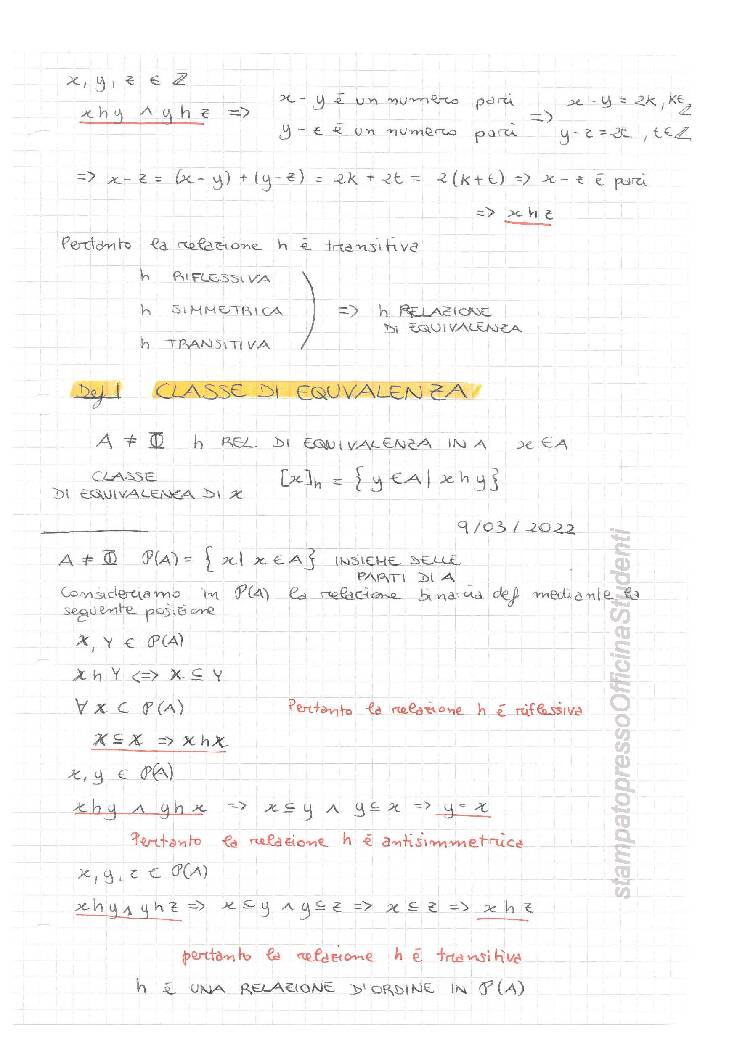 x, y, z ∈ ℤ
x h y ∧ y h z => x - y è un numero pari => x - y = 2k, k∈ℤ
y - z è un numero pari y - z = 2t, t∈ℤ
=> x - z = (x - y) + (y - z) = 2k + 2t = 2(k+t) => x - z è pari
=> x h z
Pertanto la relazione h è transitiva
h RIFLESSIVA
h SIMMETRICA => h RELAZIONE
DI EQUIVALENZA
h TRANSITIVA
Def 1 CLASSE DI EQUVALENZA
A ≠ Φ h REL. DI EQUIVALENZA IN A x ∈ A
CLASSE [x]h = { y ∈ A | x h y }
DI EQUIVALENZA DI x
9/03/2022
A ≠ Φ P(A) = { x | x ∈ A } INSIEME DELLE
PARTI DI A
Consideriamo in P(A) la relazione binaria def mediante la
seguente posizione
X, Y ∈ P(A)
X h Y <=> X ⊆ Y
∀ X ⊂ P(A) Pertanto la relazione h è riflessiva
X ⊆ X => X h X
x, y ∈ P(A)
x h y ∧ y h x => x ⊆ y ∧ y ⊆ x => y = x
Pertanto la relazione h è antisimmetrica
x, y, z ∈ P(A)
x h y ∧ y h z => x ⊆ y ∧ y ⊆ z => x ⊆ z => x h z
pertanto la relazione h è transitiva
h È UNA RELAZIONE D'ORDINE IN P(A)
stampatopressoOfficinaStudenti